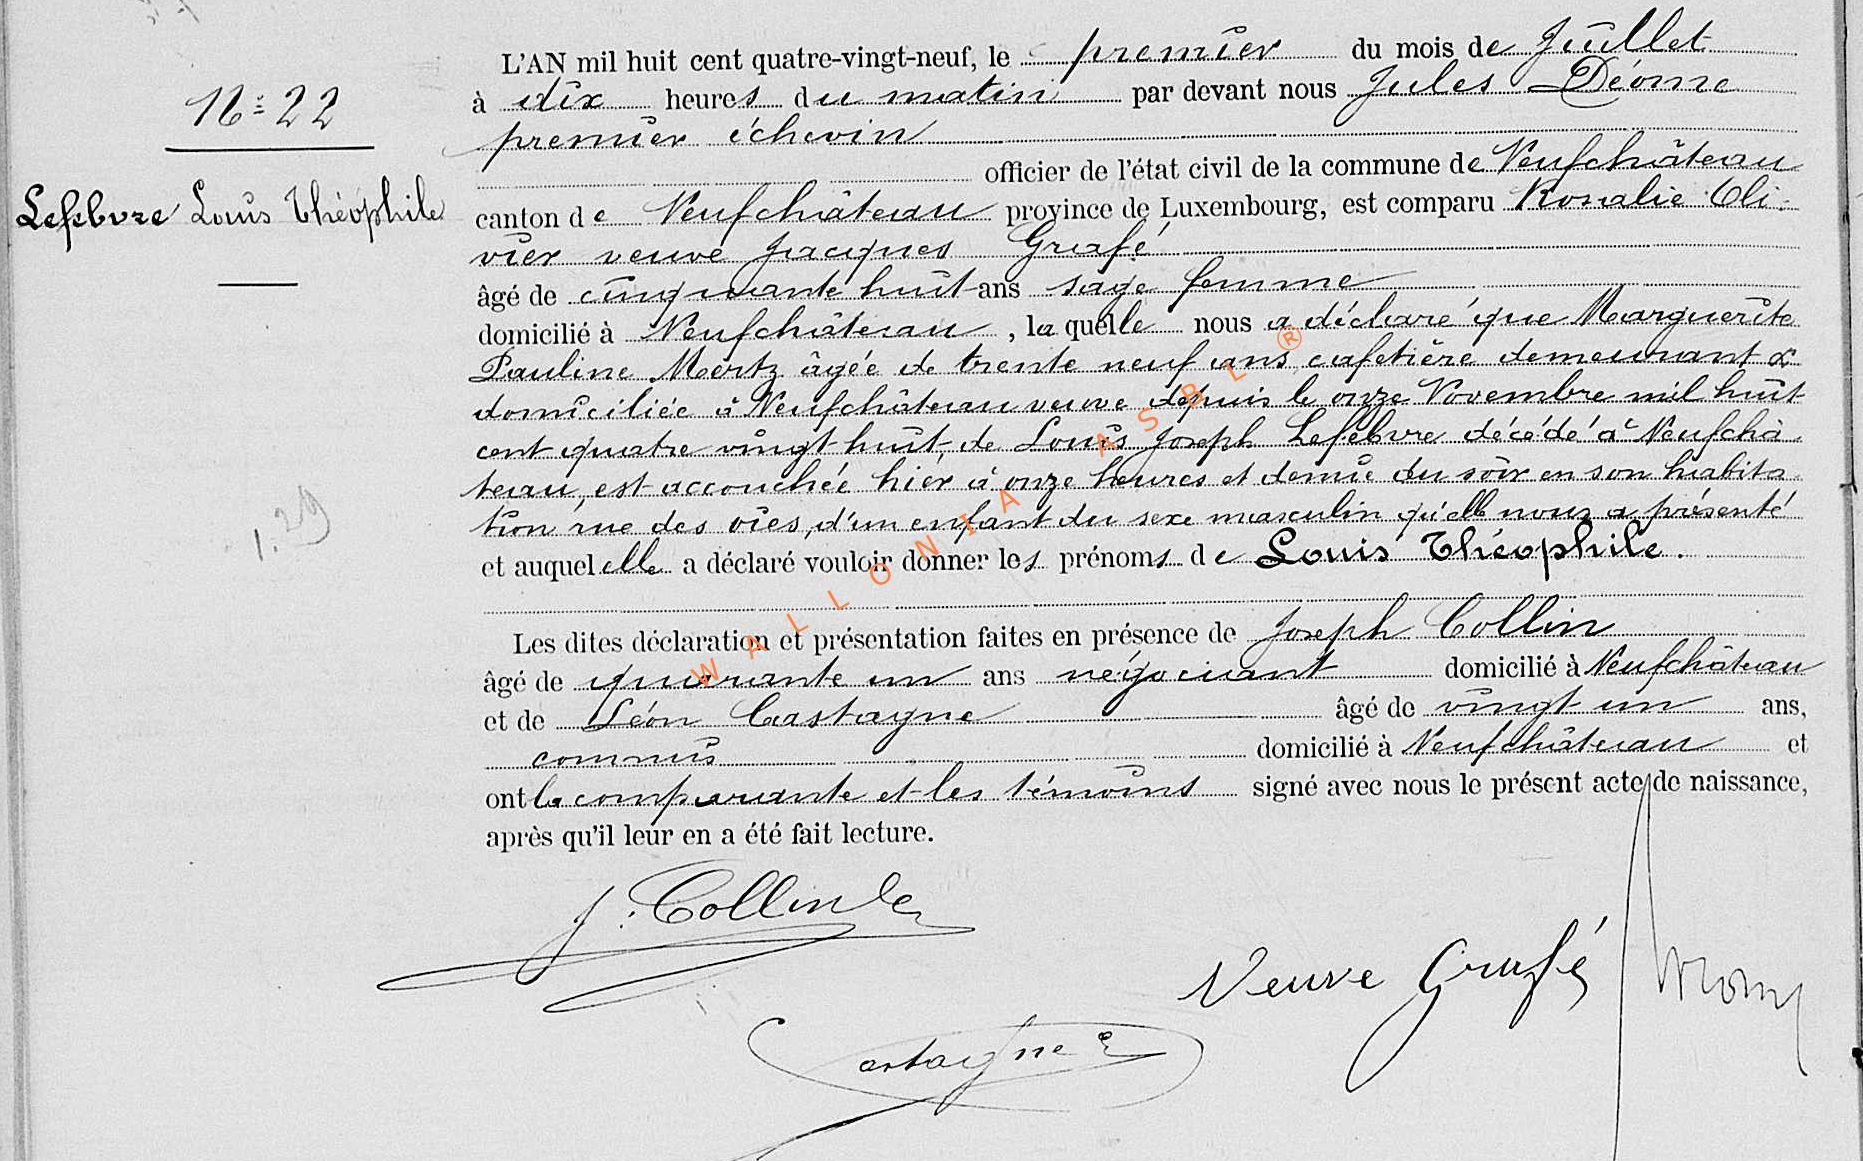 N° 22
Lefebvre Louis Théophile
1.29
L'AN mil huit cent quatre-vingt-neuf, le premier du mois de Juillet
à dix heures du matin par devant nous Jules Déome
premier échevin
officier de l'état civil de la commune de Neufchâteau
canton de Neufchâteau province de Luxembourg, est comparu Rosalie Oli-
vier veuve Jacques Grafé
âgé de cinquante huit ans sage femme
domicilié à Neufchâteau, la quelle nous a déclaré que Marguerite
Pauline Mertz âgée de trente neuf ans, cafetière demeurant &
domiciliée à Neufchâteau veuve depuis le onze Novembre mil huit
cent quatre vingt huit, de Louis Joseph Lefèbvre décédé à Neufchâ-
teau, est accouchée hier à onze heures et demie du soir en son habita-
tion rue des oies, d'un enfant du sexe masculin qu'elle nous a présenté
et auquel elle a déclaré vouloir donner les prénoms de Louis Théophile.
Les dites déclaration et présentation faites en présence de Joseph Collin
âgé de quarante un ans négociant domicilié à Neufchâteau
et de Léon Castagne âgé de vingt un ans,
commis domicilié à Neufchâteau et
ont la comparante et les témoins signé avec nous le présent acte de naissance,
après qu'il leur en a été fait lecture.
J. Collin
Veuve Grafé
Castagne
WALLONIA ASBL ®